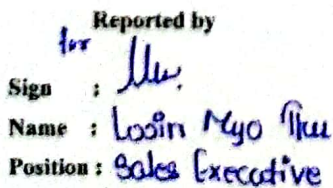 Reported by
for
Sign :
Name : Losin Myo Thu
Position : Sales Executive